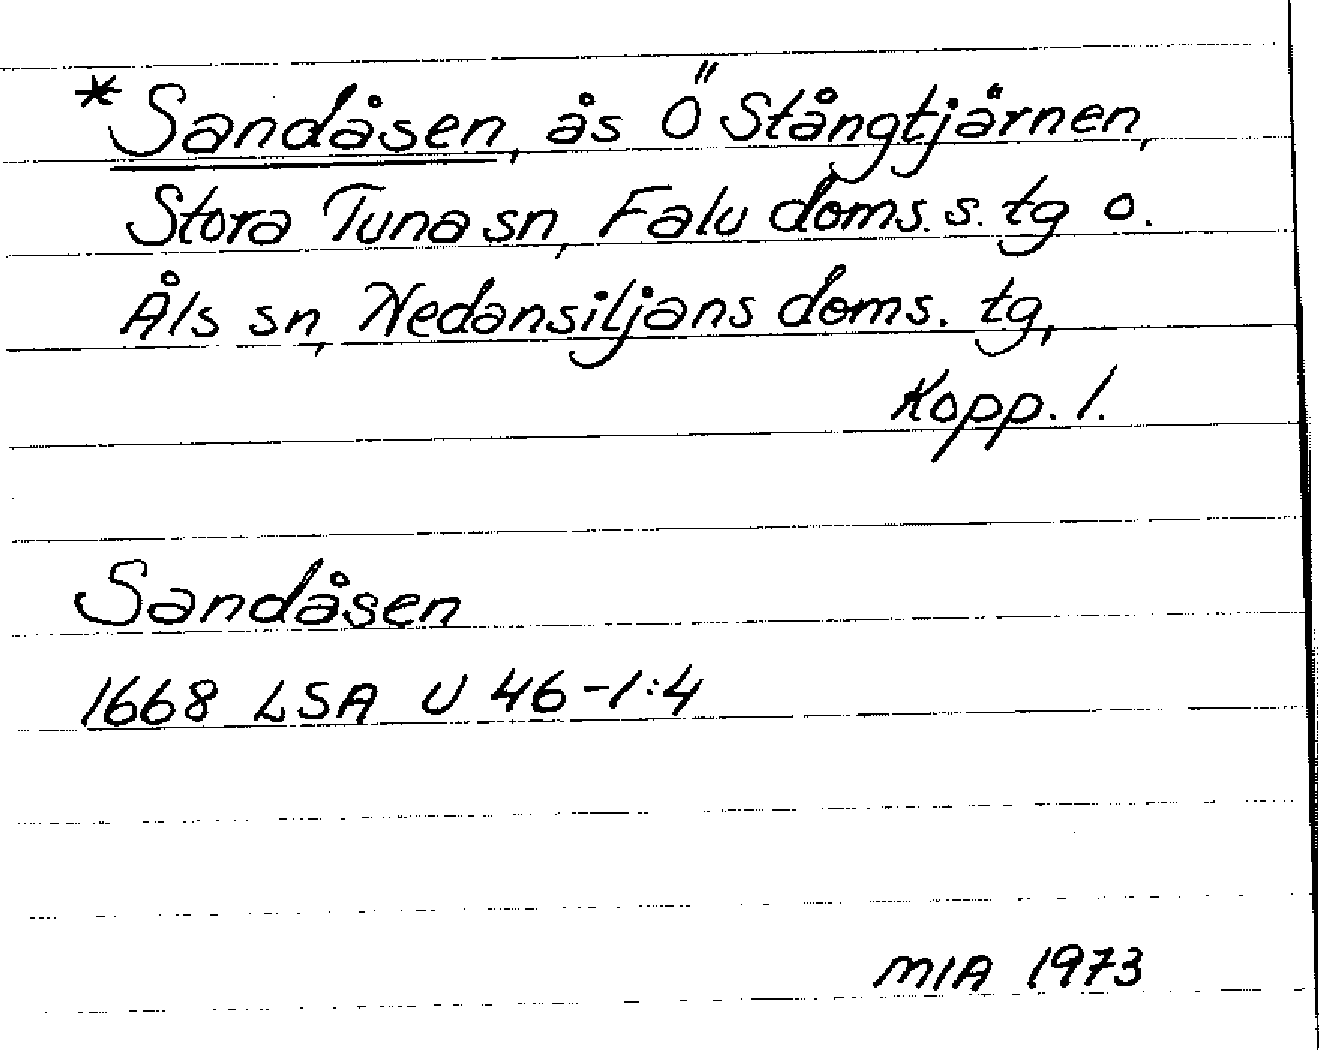 *Sandåsen, ås Ö Stångtjärnen,
Stora Tuna sn, Falu doms. s. tg o.
Åls sn, Nedansiljans doms. tg,
Kopp. l.
Sandåsen
1668 LSA U 46-1:4
MIA 1973